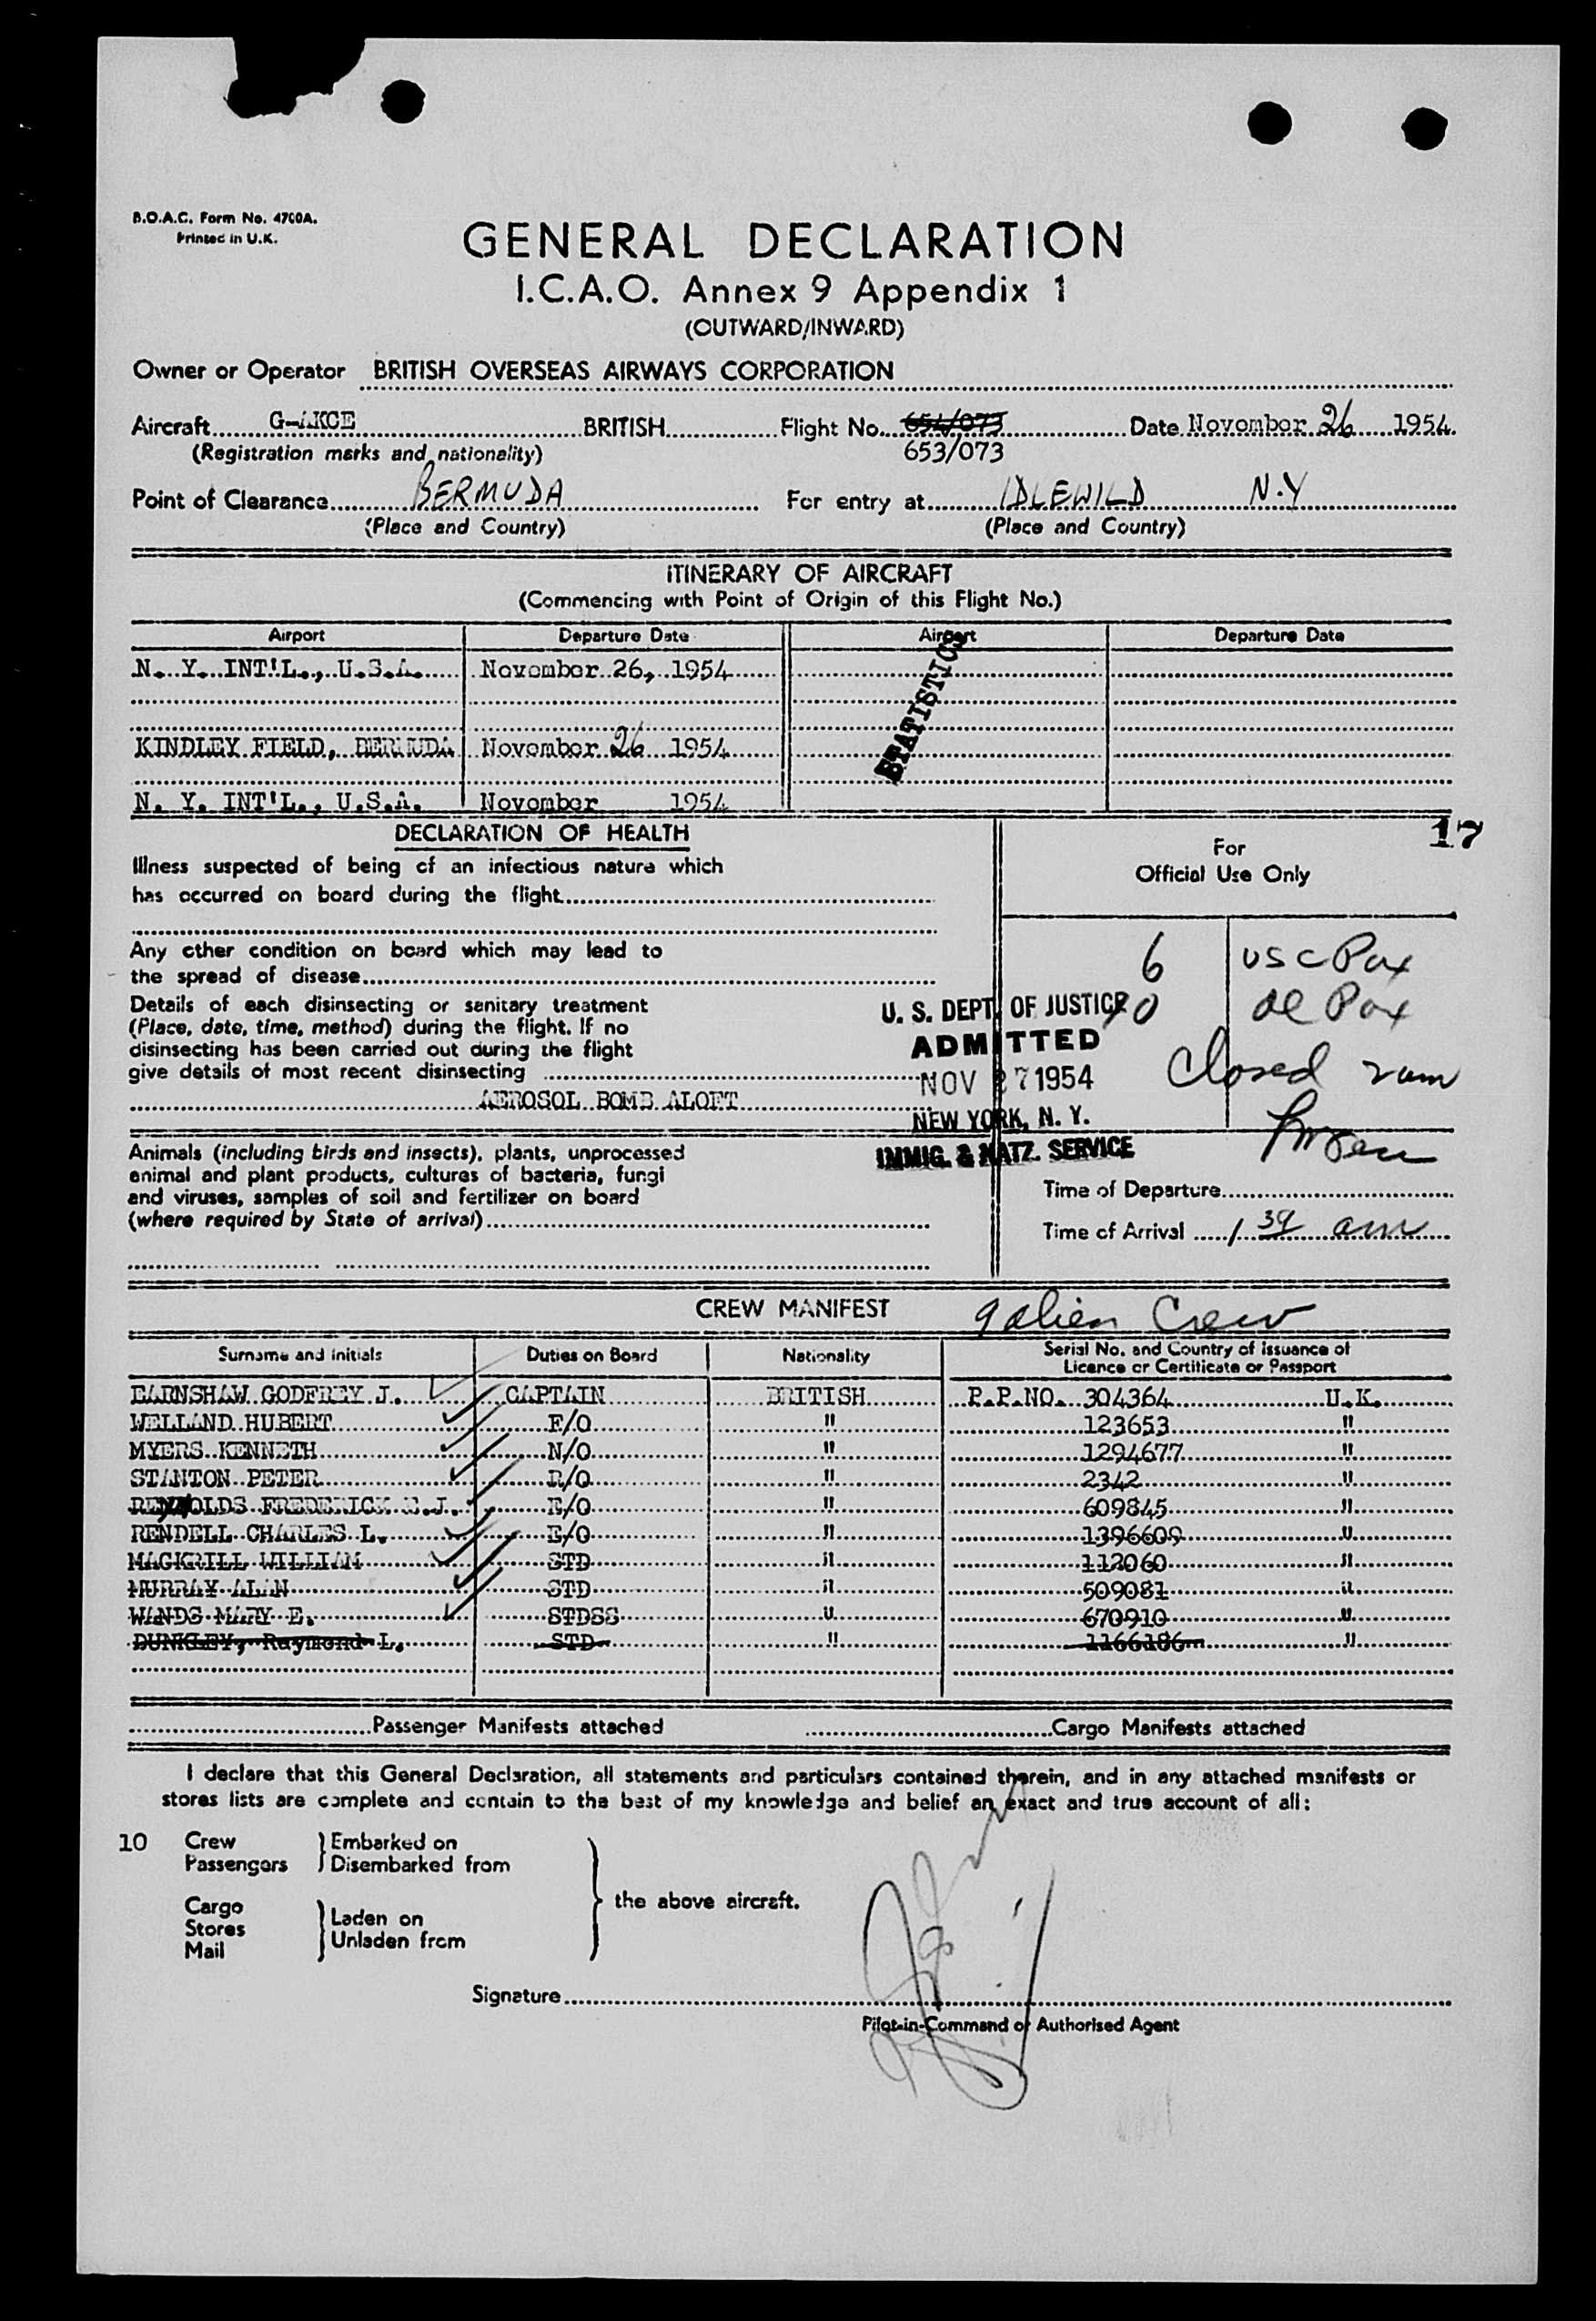 B.O.A.C. Form No. 4700A.
Printed in U.K.
GENERAL DECLARATION
I.C.A.O. Annex 9 Appendix 1
(OUTWARD/INWARD)
Owner or Operator BRITISH OVERSEAS AIRWAYS CORPORATION
Aircraft G-AKCE BRITISH Flight No. 654/073 Date November 26 1954.
(Registration marks and nationality) 653/073
Point of Clearance BERMUDA For entry at IDLEWILD N.Y
(Place and Country) (Place and Country)
ITINERARY OF AIRCRAFT
(Commencing with Point of Origin of this Flight No.)
Airport Departure Date Airport Departure Date
N. Y. INT'L., U.S.A. November 26, 1954
STATISTICS
KINDLEY FIELD, BERMUDA November 26 1954
N. Y. INT'L., U.S.A. November 1954
DECLARATION OF HEALTH
17
For
Official Use Only
Illness suspected of being of an infectious nature which
has occurred on board during the flight
Any other condition on board which may lead to
the spread of disease
6 USC Pax
Details of each disinsecting or sanitary treatment
(Place, date, time, method) during the flight. If no
disinsecting has been carried out during the flight
give details of most recent disinsecting
AEROSOL BOMB ALOFT
U. S. DEPT. OF JUSTICE
ADMITTED
NOV 27 1954
NEW YORK, N. Y.
IMMIG. & NATZ. SERVICE
Pax
Closed
Animals (including birds and insects), plants, unprocessed
animal and plant products, cultures of bacteria, fungi
and viruses, samples of soil and fertilizer on board
(where required by State of arrival)
Time of Departure
Time of Arrival 1 39 am
CREW MANIFEST 9 alien Crew
Surname and initials Duties on Board Nationality Serial No. and Country of issuance of
Licence or Certificate or Passport
EARNSHAW GODFREY J. CAPTAIN BRITISH P.P.NO. 304364 U.K.
WELLAND HUBERT F/O " 123653 "
MYERS KENNETH N/O " 1294677 "
STANTON PETER R/O " 2342 "
REYNOLDS FREDERICK E.J. E/O " 609845 "
RENDELL CHARLES L. E/O " 1396609 "
MACKRILL WILLIAM STD " 112060 "
MURRAY ALAN STD " 509081 "
WANDS MARY E. STDSS " 670910 "
DUNKLEY, Raymond L. STD " 1166186 "
Passenger Manifests attached Cargo Manifests attached
I declare that this General Declaration, all statements and particulars contained therein, and in any attached manifests or
stores lists are complete and contain to the best of my knowledge and belief an exact and true account of all:
10 Crew Embarked on
Passengers Disembarked from
the above aircraft.
Cargo
Stores Laden on
Mail Unladen from
Signature
Pilot-in-Command or Authorised Agent